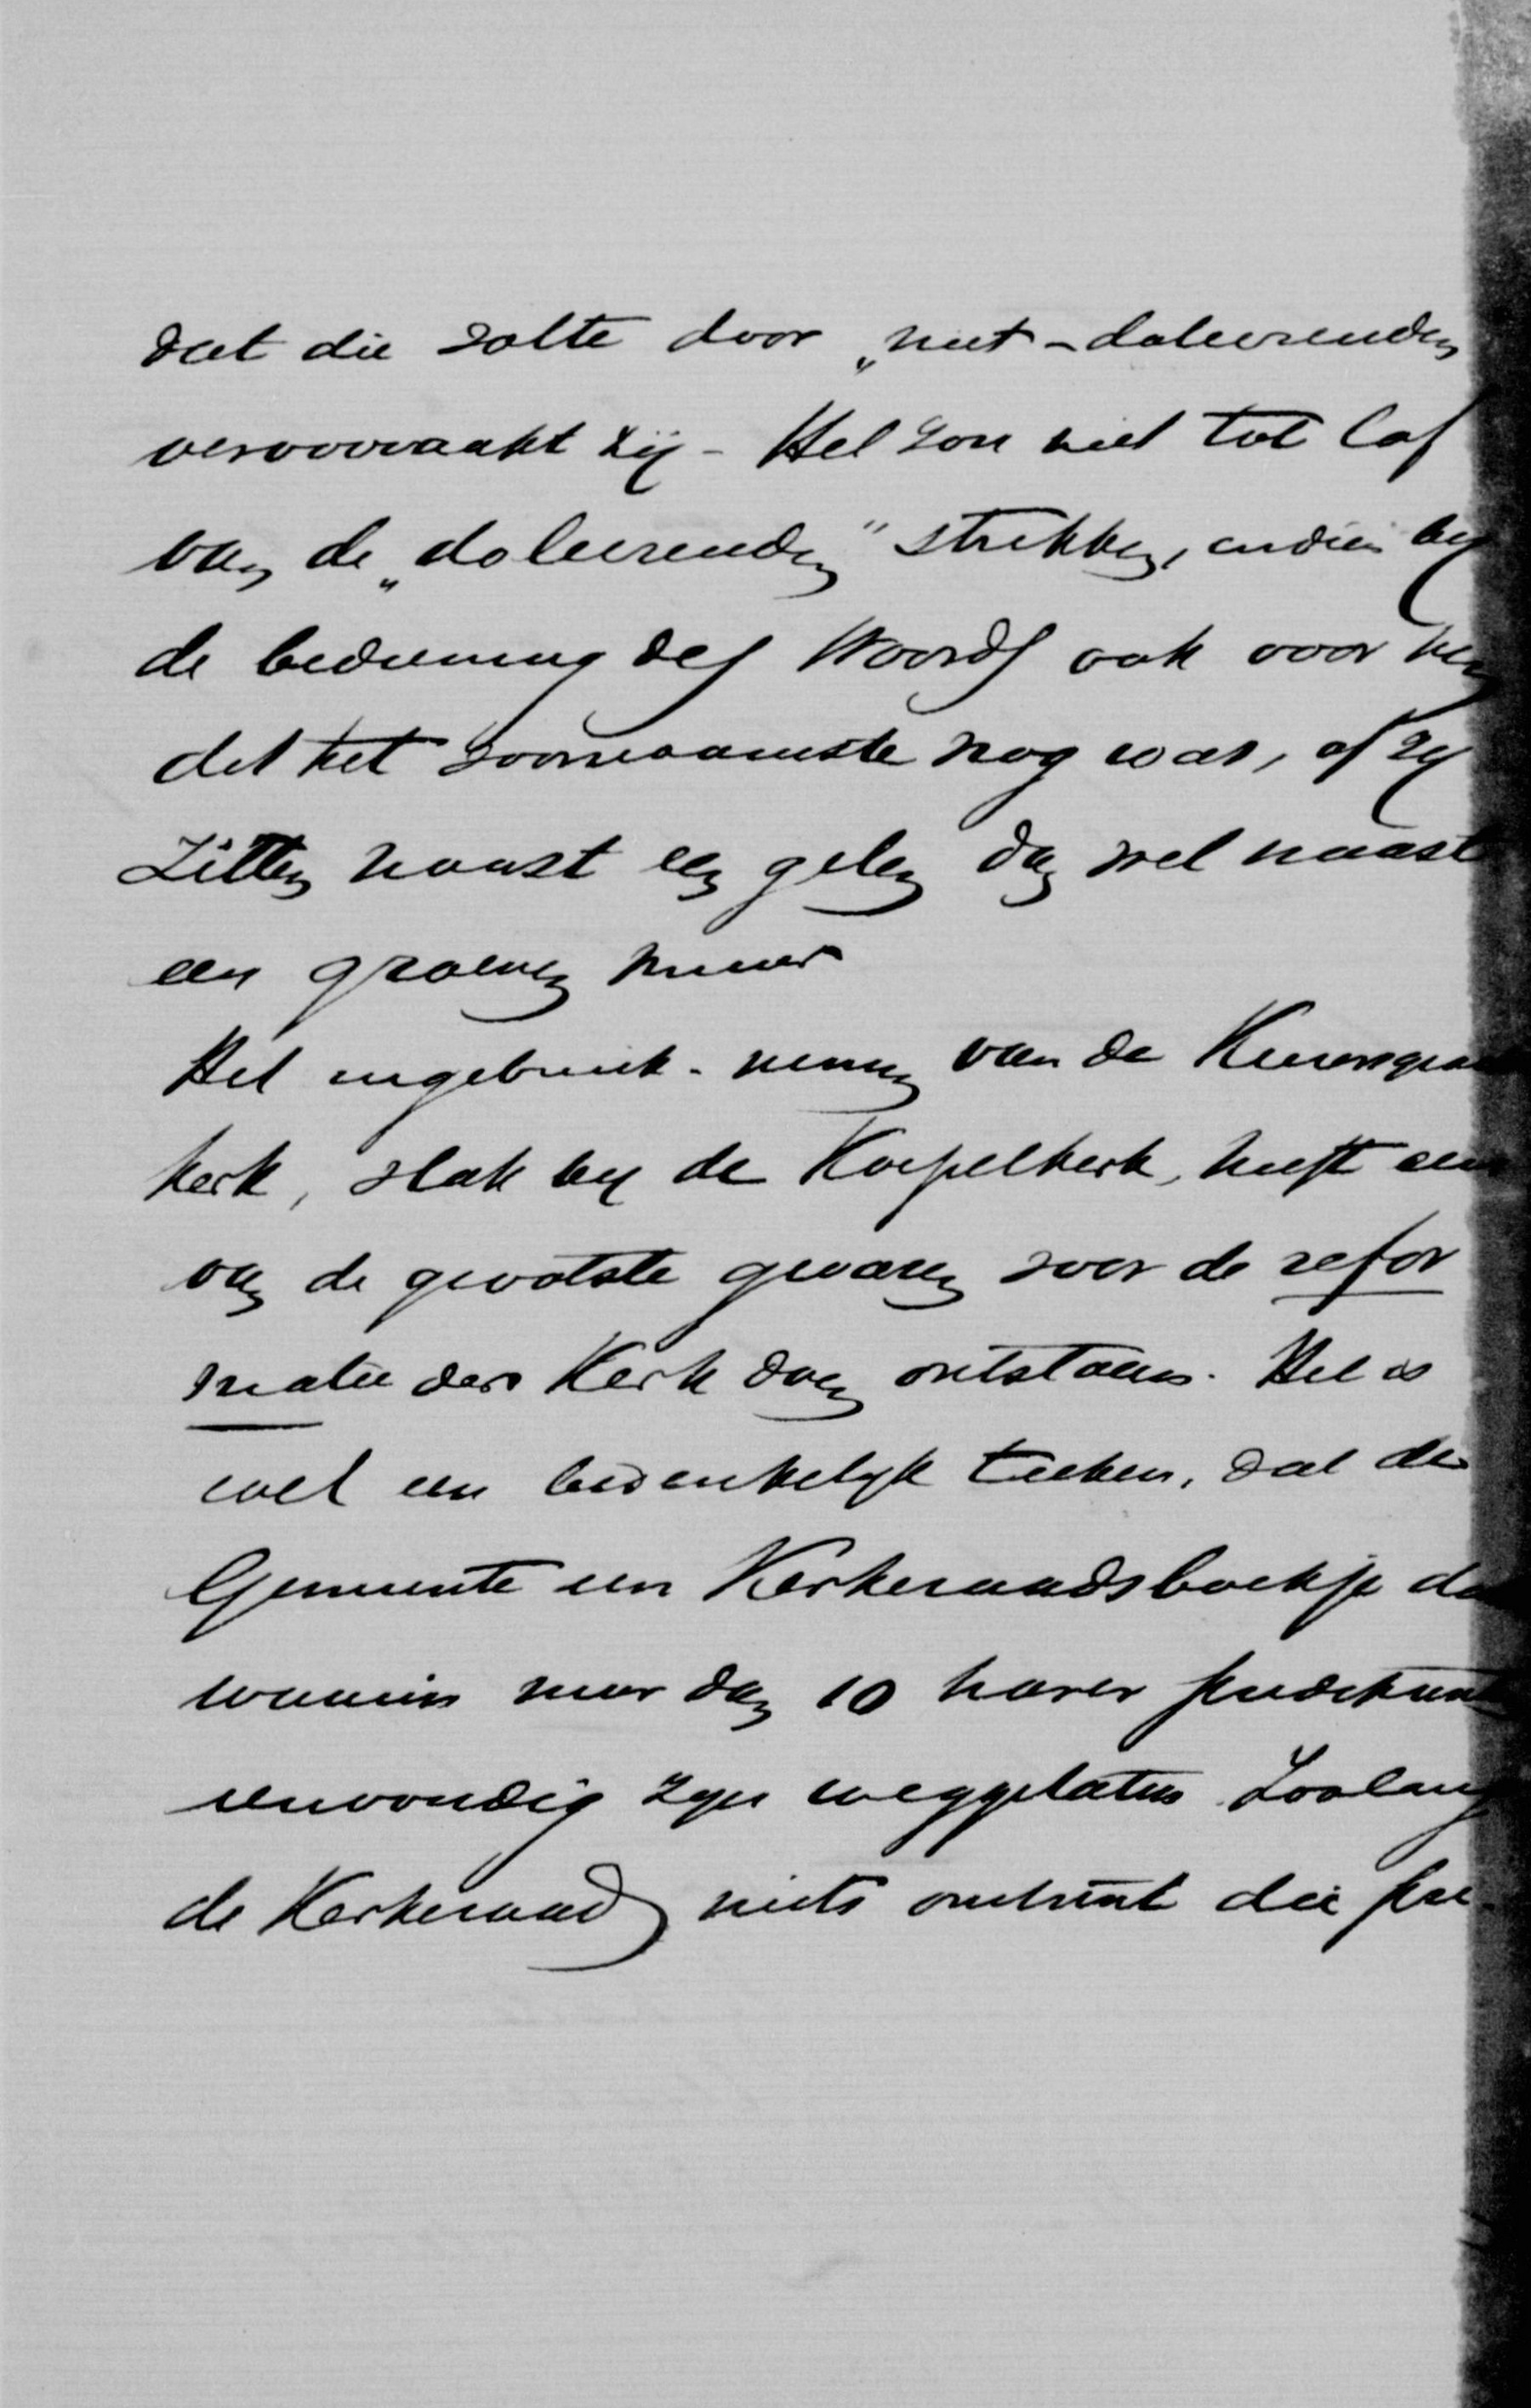 dat die zotte door „niet-doleerenden
veroorzaakt zij - Het zou niet tot lof
van de „doleerenden" strekken, indien bij
de bediening des Woords ook voor hen
dit het voornaamste nog was, of zij
zitten naast een gelen dan wel naast
een groenen muur
Het ingebruik-nemen van de Keizersgra
kerk, vlak bij de Koepelkerk, heeft een
van de grootste gevaren voor de refor
matie der Kerk doen ontstaan. Het is
wel een bedenkelijk teeken, dat de
Gemeente een Kerkeraadsboekje
waarin meer dan 10 harer predikant
eenvoudig zijn weggelaten Zoolang
de Kerkeraad niets omtrent die pre-